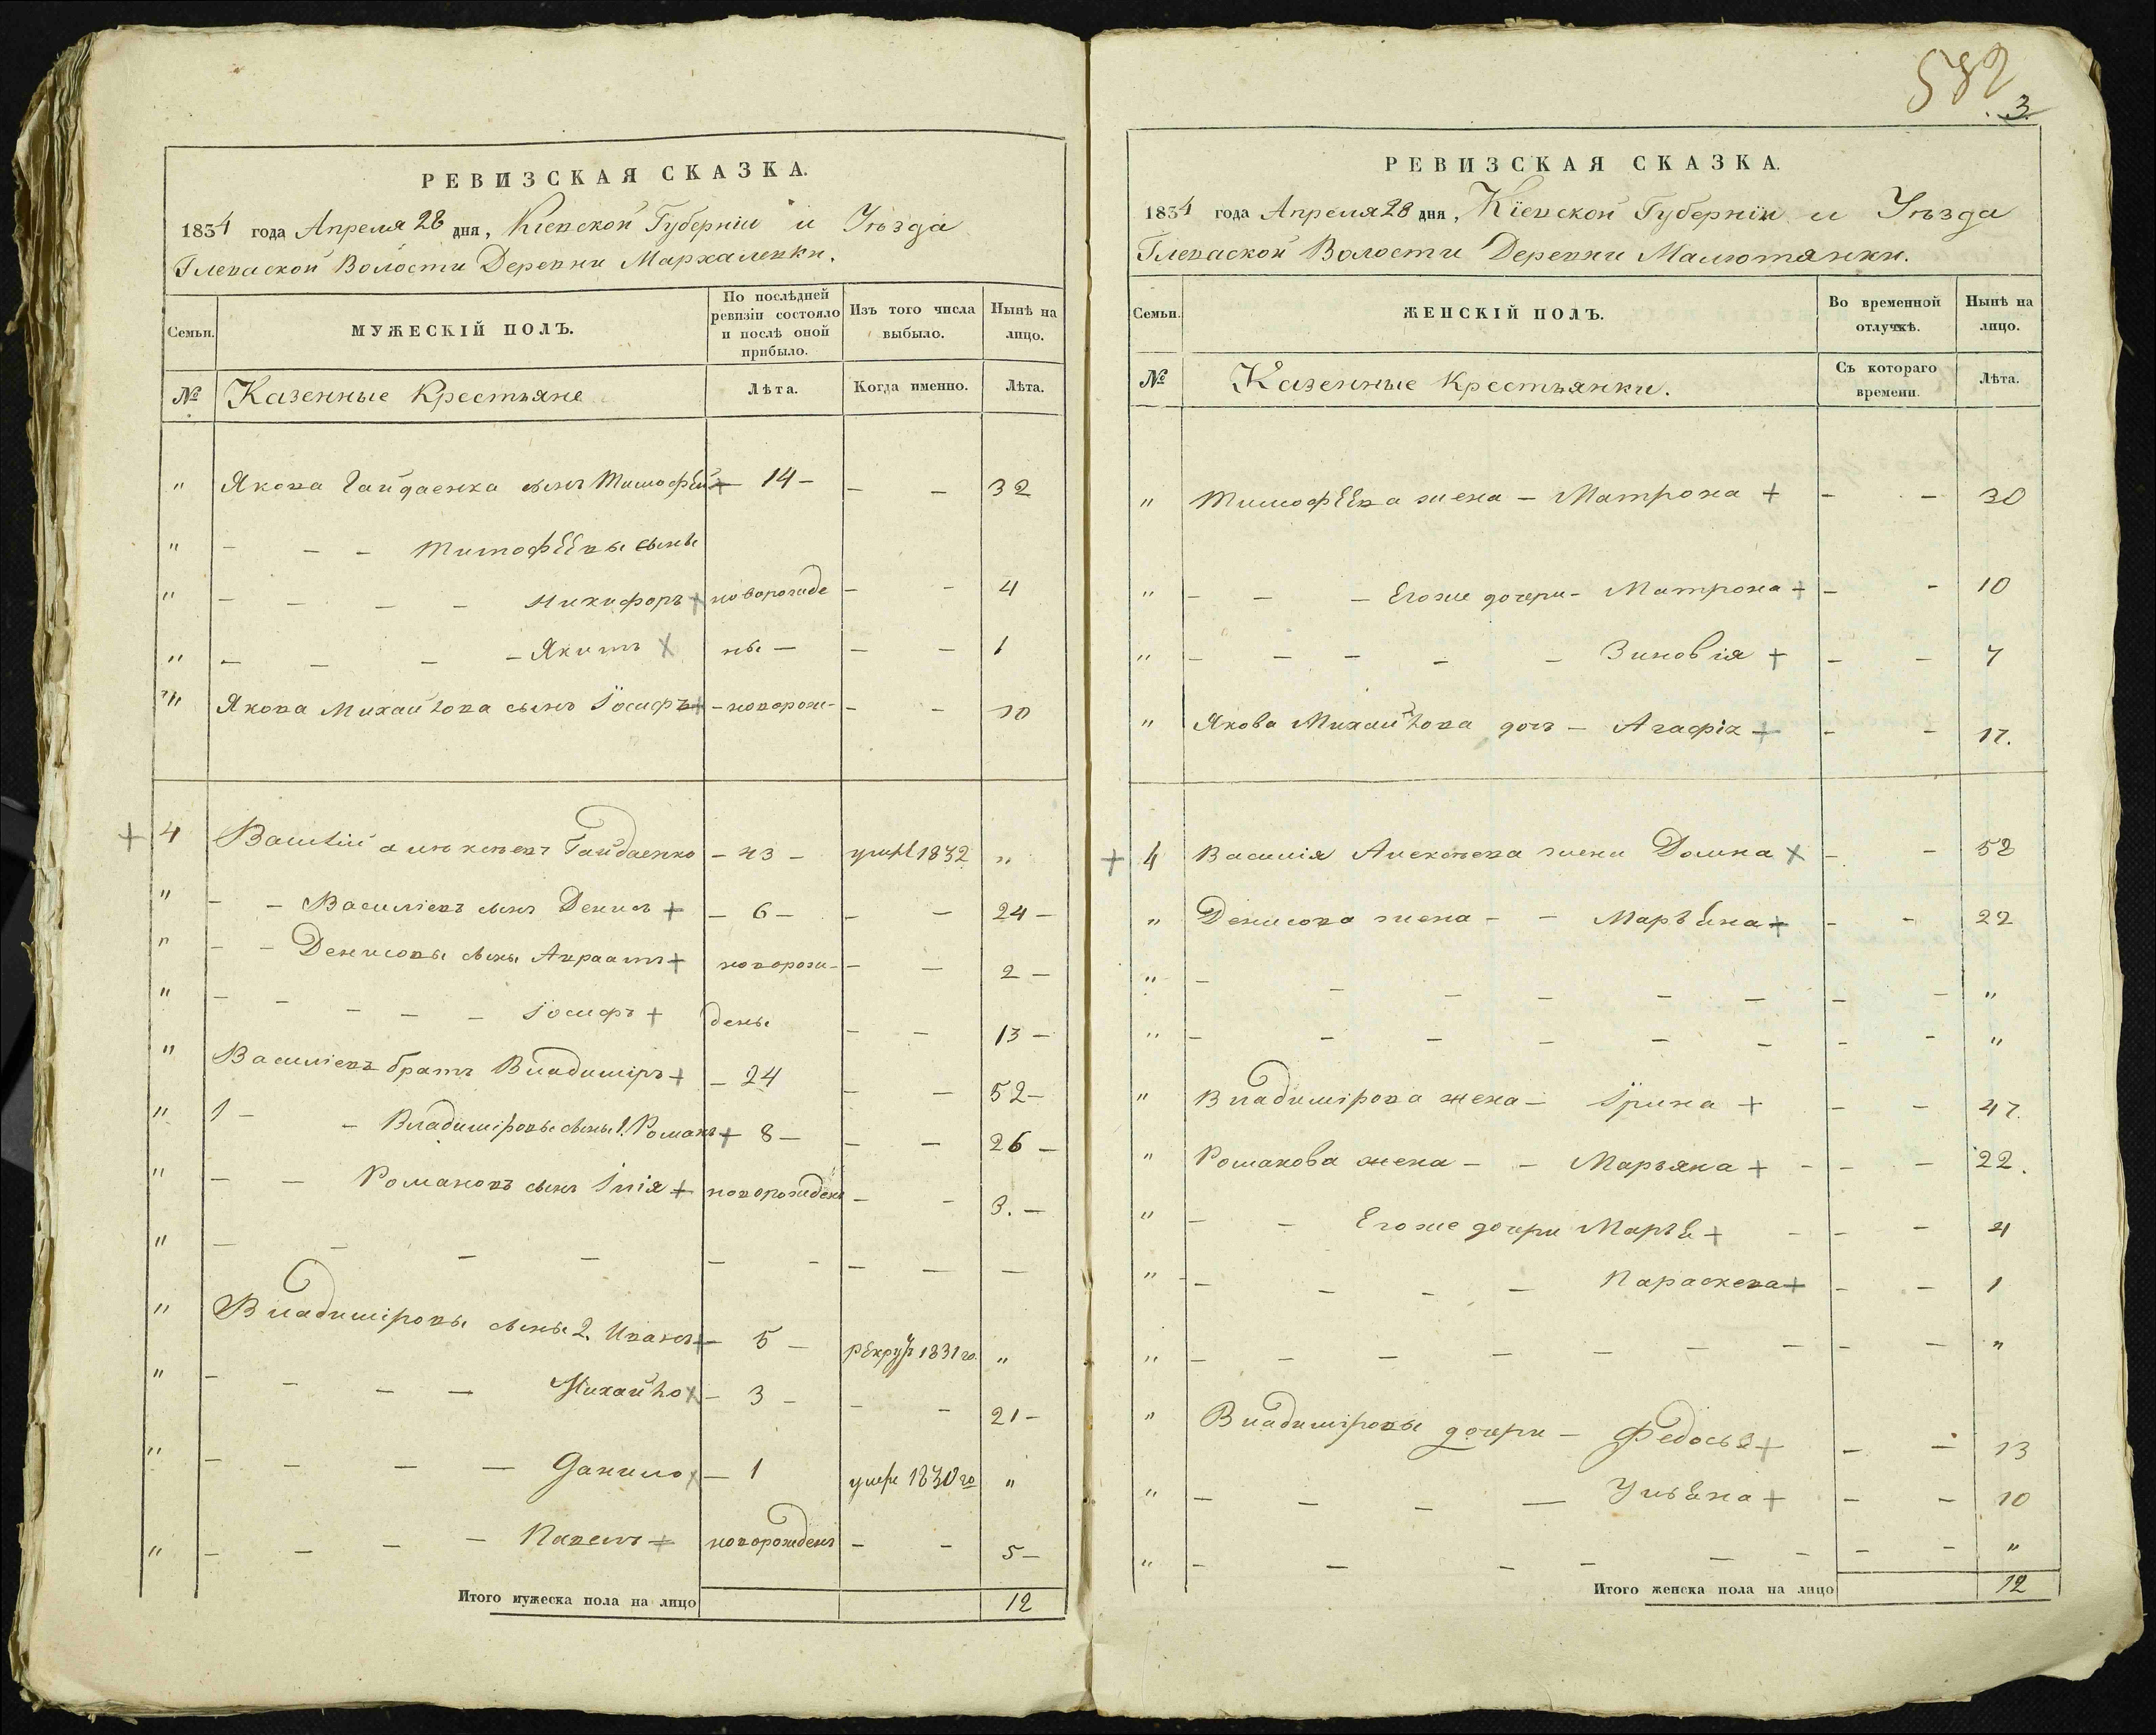 РЕВИЗСКАЯ СКАЗКА.
1834 года Апреля 28 дня, Кіевской Губерніи и Уѣзда
Глеваской Волости Деревни Мархалевки.
Семьи. МУЖЕСКІЙ ПОЛЪ. По послѣдней ревизіи состояло и послѣ оной прибыло. Изъ того числа выбыло. Нынѣ на лицо.
№ Казенные Крестьяне Лѣта. Когда именно. Лѣта.
" Якова Гайдаенка сынъ Тимофѣй + 14 - - - 32
" - - - Тимофѣевы сыны
" - - - - Никифоръ + новорожде - - 4
" - - - - Якимъ X ны - - - 1
" Якова Михайлова сынъ Іосифъ + - новорож- - - 10
+ 4 Василій Алексѣевъ Гайдаенко - 43 - умре 1832 "
" - - Василіевъ сынъ Денисъ + - 6 - - - 24 -
" - - Денисовы сыны Авраамъ + новорож- - - 2 -
" - - - - - Іосифъ + дены - - 13 -
" Василіевъ братъ Владиміръ + - 24 - - 52 -
" 1 - - Владиміровы сыны 1. Романъ + 8 - - - 26 -
" - - Романовъ сынъ Илія + новорожденъ - - 3. -
" - - - - - - - - -
" Владиміровы сыны 2. Иванъ + 5 - рекрут 1831 го. "
" - - - - Михайло X - 3 - - - 21 -
" - - - - Данило X - 1 умре 1830 го "
" - - - - Павелъ + новорожденъ - - 5 -
Итого мужеска пола на лицо 12
582
3
РЕВИЗСКАЯ СКАЗКА.
1834 года Апреля 28 дня, Кіевской Губерніи и Уѣзда
Глеваской Волости Деревни Малютянки.
Семьи. ЖЕНСКІЙ ПОЛЪ. Во временной отлучкѣ. Нынѣ на лицо.
№ Казенные Крестьянки. Съ котораго времени. Лѣта.
" Тимофѣева жена - Матрона + - - 30
" - - - Егоже дочери - Матрона + - - 10
" - - - - - Зиновія + - - 7
" Якова Михайлова дочь - Агафія + - - 17.
+ 4 Василія Алексѣева жена Домна X - - 52
" Денисова жена - - Марѣяна + - - 22
" - - - - - - - - "
" - - - - - - - - "
" Владимірова жена - Ірина + - - 47.
" Романова жена - - Марьяна + - - - 22.
" - - Егоже дочери Марѣя + - - - 4
" - - - - - Параскева + - - 1
" - - - - - - - - "
" Владиміровы дочери - Федосья + - - 13
" - - - - Ульяна + - - 10
" - - - - - - - - "
Итого женска пола на лицо 12